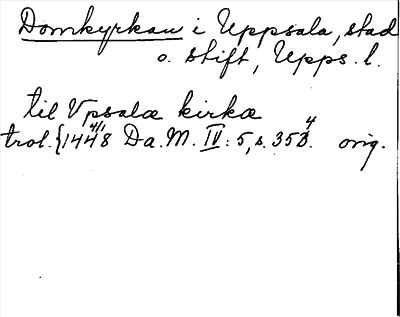 Domkyrkan i Uppsala, stad
o. stift, Upps. l.
til Vpsalæ kirkæ
4/1 4
trol. {1448 Da. M. IV: 5, s. 353. orig.